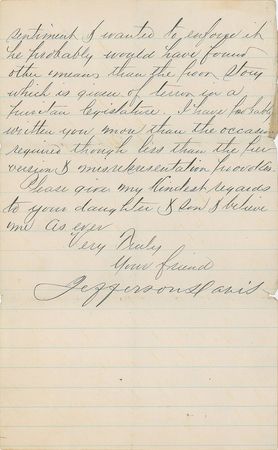 sentiment & wanted to enforce it
he probably would have found
other means than the poor story
which is given of terror in a
puritan legislature. I have probably
written you more than the occasion
requires though less than the per
version & misrepresentation provokes.
Please give my kindest regards
to your daughter & son & believe
me as ever
Very Truly
Your friend
Jefferson Davis